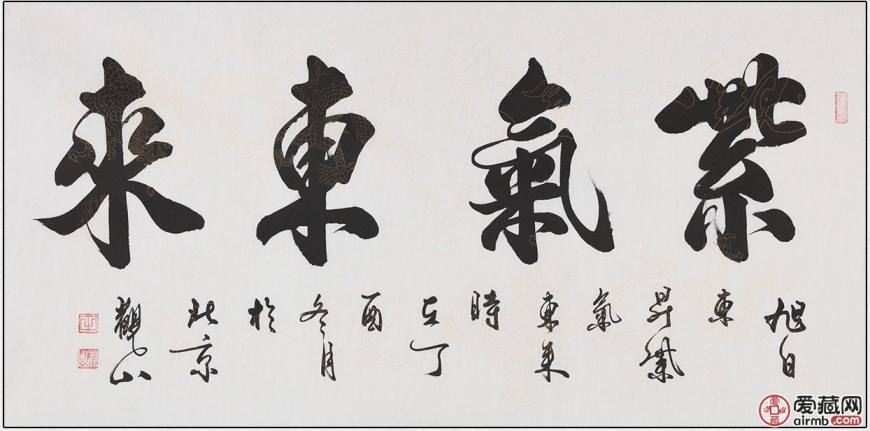 紫氣東來
旭日
東
昇紫
氣
東來
時
在丁
酉
冬月
於
北京
觀山
爱藏网
airmb.com